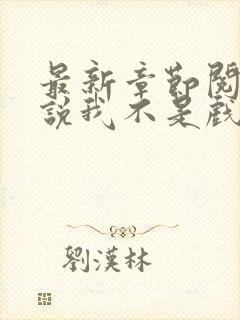 最新章節閱
說我不是戲
劉漢林